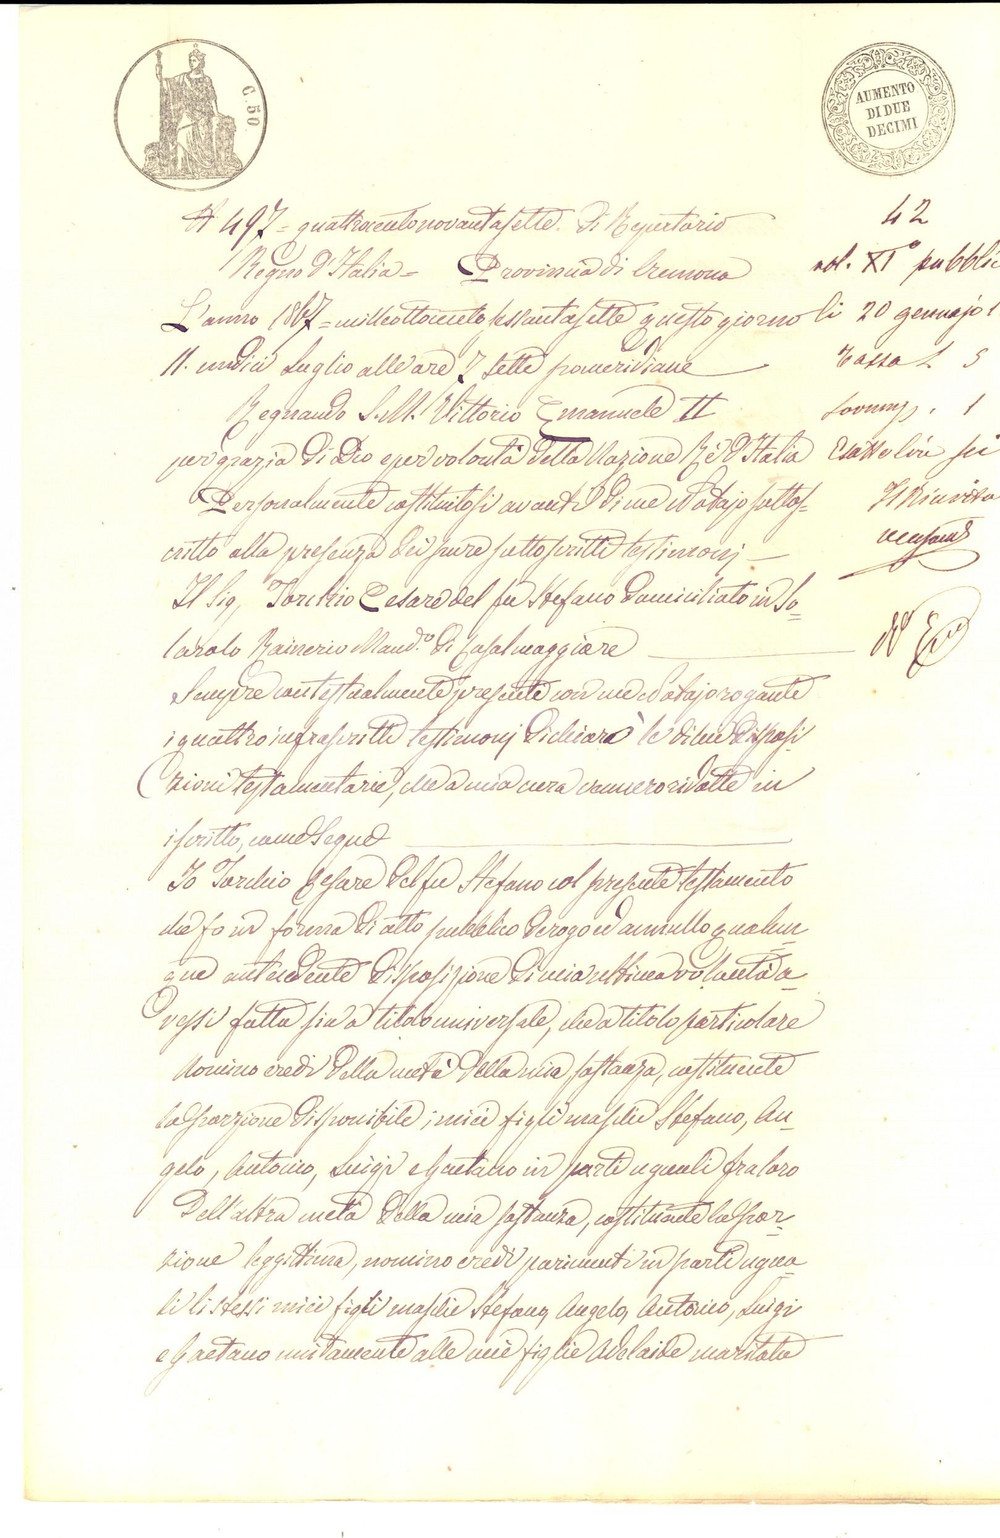 C. 50
AUMENTO
DI DUE
DECIMI
N 497 = quattrocentonovantasette. Di Repertorio
Regno d'Italia = Provincia di Cremona
L'anno 1867 = milleottocentosessantasette questo giorno
11. undici Luglio alle ore 7 sette pomeridiane
Regnando S. M. Vittorio Emanuele II
per grazia di Dio e per volontà della Nazione Rè d'Italia
Personalmente costituitosi avanti di me Notajo sottos-
critto alla presenza dei pure sottoscritti testimonj
Il Sig. Torchio Cesare del fu Stefano domiciliato in So-
larolo Rainerio Mand.o di Casalmaggiore
Sempre contestualmente presente con me Notajo rogante
i quattro infrascritti testimonj dichiarò le di lui disposi
zioni testamentarie, che a mia cura vennero ridotte in
iscritto, come segue
Io Torchio Cesare del fu Stefano col presente testamento
che fo in forma di atto pubblico derogo ed annullo qualun-
que antecedente disposizione di mia ultima volontà a-
vessi fatta sia a titolo universale, che a titolo particolare
Nomino eredi della metà della mia sostanza, costituente
la porzione disponibile i miei figli maschi Stefano, An-
gelo, Antonio, Luigi e Gaetano in parti uguali fra loro
Dell'altra metà della mia sostanza, costituente la por-
zione legittima, nomino eredi parimenti in parti ugua-
li li stessi miei figli maschi Stefano, Angelo, Antonio, Luigi
e Gaetano unitamente alle mie figlie Adelaide maritata
42
vol. XI° pubblic
li 20 gennajo 1
Tassa L 5
Sovrimp. . 1
Esatte lire sei
Il Ricevitore